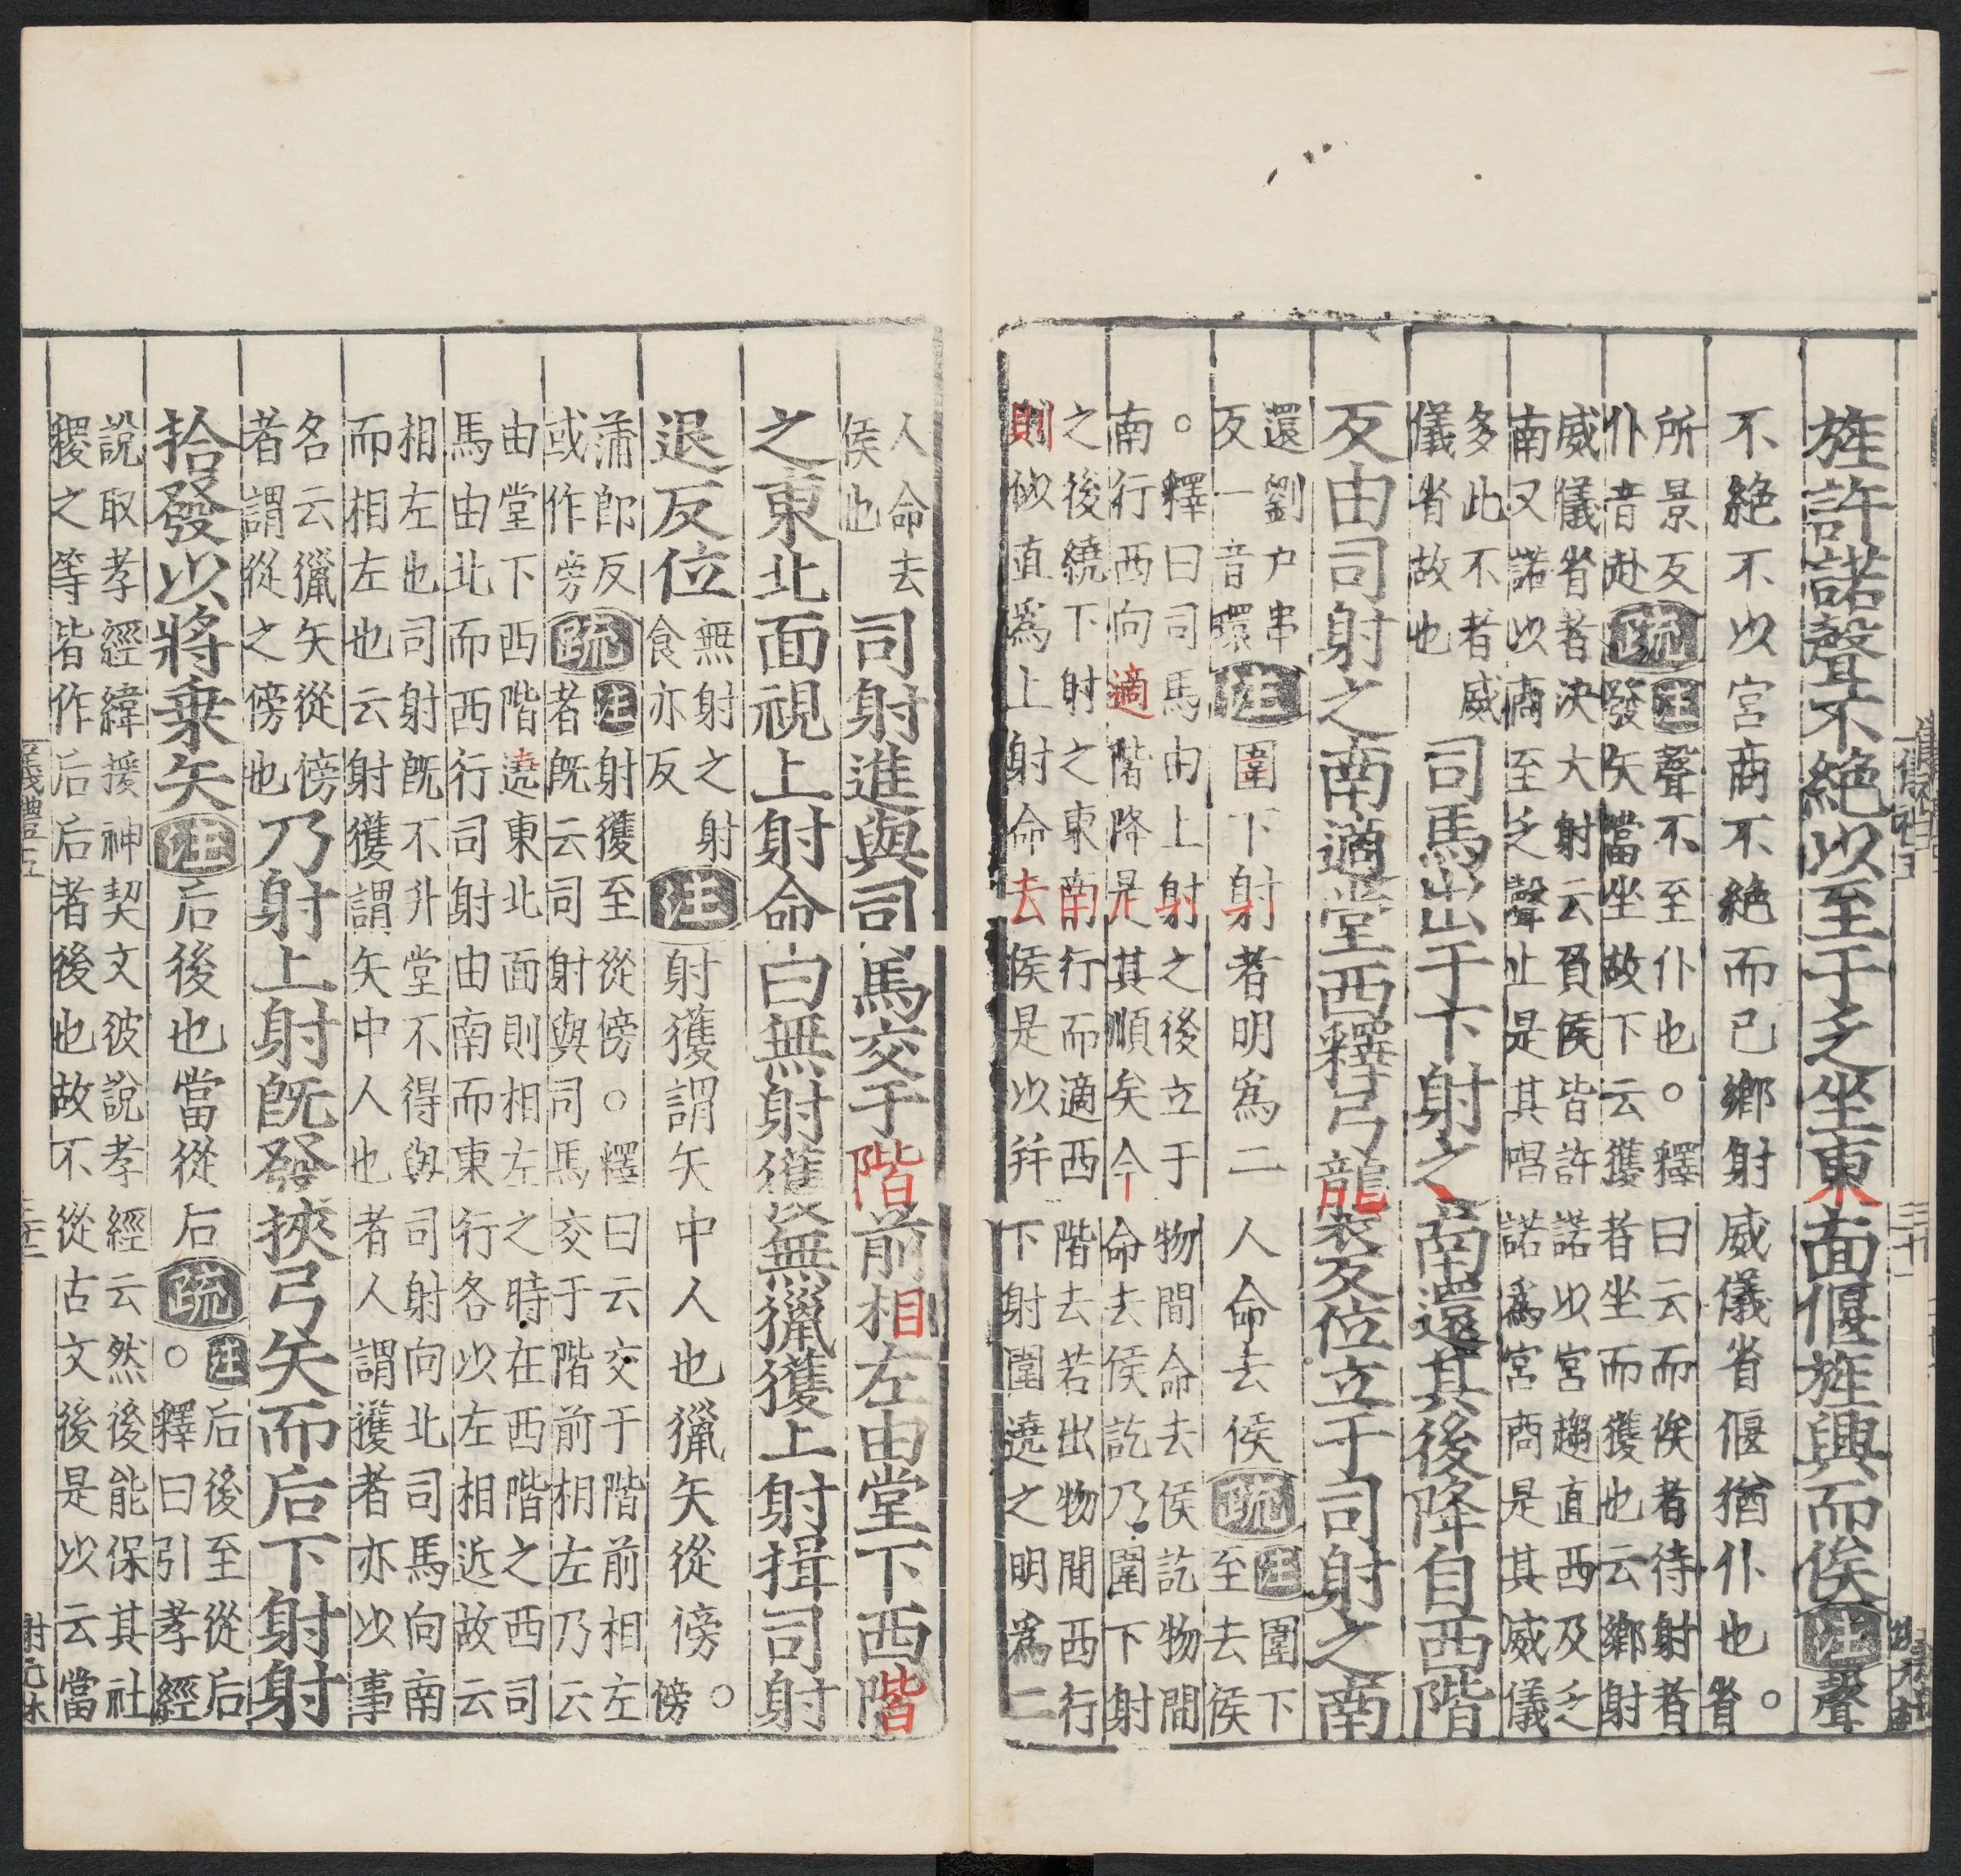 旌許諾聲不絕以至于乏坐東面偃旌興而俟注聲
不絕不以宮商不絕而已鄉射威儀省偃猶仆也。省
所景反疏注聲不至仆也。釋曰云而俟者待射者
仆音赴發矢當坐故下云獲者坐而獲也云鄉射
威儀省者決大射云負侯皆許諾以宮趨直西及乏
南又諾以商至乏聲止是其唱諾爲宮商是其威儀
多此不者威
儀省故也
司馬出于下射之南還其後降自西階
反由司射之南適堂西釋弓襲反位立于司射之南
還劉户串
反一音環
注圍下射者明爲二人命去侯疏
注圍下
至去侯
。釋曰司馬由上射之後立于物間命去侯訖物間
南行西向適階降是其順矣今命去侯訖乃圍下射
之後繞下射之東南行而適西階去若出物間西行
則似直爲上射命去侯是以并下射圍遶之明爲二
人命去
侯也
司射進與司馬交于階前相左由堂下西階
之東北面視上射命曰無射獲無獵獲上射揖司射
退反位
無射之射
食亦反
注射獲謂矢中人也獵矢從傍。傍
蒲郎反疏注射獲至從傍。釋曰云交于階前相左
或作旁者既云司射與司馬交于階前相左乃云
由堂下西階遶東北面則相左之時在西階之西司
馬由北而西行司射由南而東行各以左相近故云
相左也司射既不升堂不得與司射向北司馬向南
而相左也云射獲謂矢中人也者人謂獲者亦以事
名云獵矢從傍
者謂從之傍也
乃射上射既發挾弓矢而后下射射
拾發以將乗矢注后後也當從后疏
注后後至從后
。釋曰引孝經
說取孝經緯援神契文彼說孝經云然後能保其社
稷之等皆作后后者後也故不從古文後是以云當